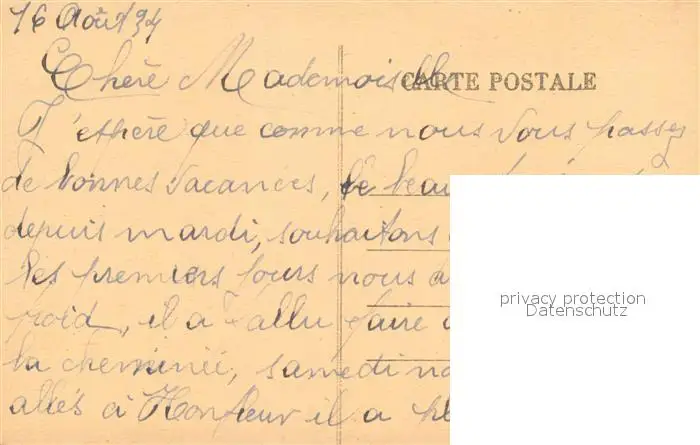 16 Août 34
Chère Mademoiselle
CARTE POSTALE
J'espère que comme nous vous passez
de bonnes vacances, le beau
depuis mardi, souhaitons
les premiers jours nous a
froid, il a fallu faire
la cheminée, samedi no
allés à Honfleur il a
privacy protection
Datenschutz